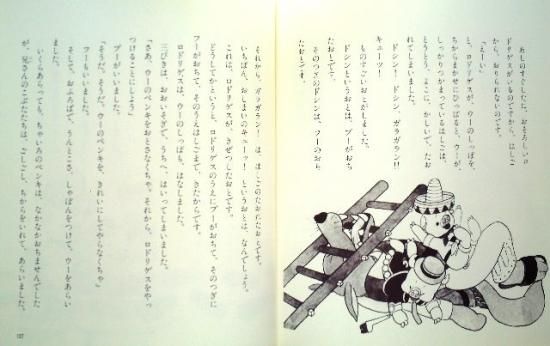 あしのすぐしたに、おそろしいロ
ドリゲスがいるのですから、はしこ
から、おりられないのです。
「えーい」
と、ロドリゲスが、ウーのしっぽを、
ちからまかせにひっぱると、ウーが、
しっかりつかまっているはしごは、
とうとう、よこに、かしいで、たお
れてしまいました。
ドシン！ドシン、ガラガラン!!
キューッ！
ものすごいおとがしました。
ドシンというおとは、ブーがおち
たおとです。
そのつぎのドシンは、フーのおち
たおとです。
それから、ガラガラン！は、はしごのたおれたおとです。
いちばん、おしまいのキューッ！というおとは、なんでしょう。
これは、ロドリゲスが、きぜつしたおとです。
どうしてかというと、ロドリゲスのうえにブーがおちて、そのつぎに
フーがおちて、そのうえはしごまで、きたからです。
ロドリゲスは、ウーのしっぽも、はなしました。
三びきは、おおいそぎで、うちへ、はいってしまいました。
「さあ、ウーのペンキをおとさなくちゃ。それから、ロドリゲスをやっ
つけることにしよう」
ブーがいいました。
「そうだ。そうだ。ウーのペンキを、きれいにしてやらなくちゃ」
フーもいいました。
そして、おふろばで、うんとこさ、しゃぼんをつけて、ウーをあらい
ました。
いくらあらっても、ちゃいろのペンキは、なかなかおちませんでした
が、兄さんのこぶたたちは、ごしごし、ちからをいれて、あらいました。
107